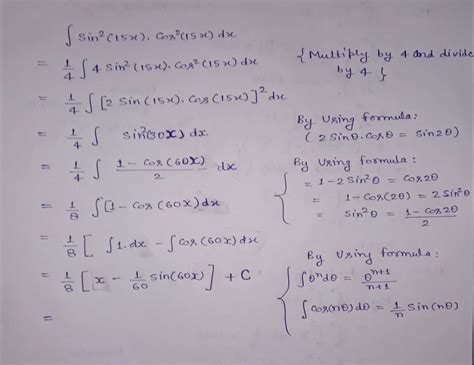 ∫ Sin²(15x). Cos²(15x) dx
= 1/4 ∫ 4 Sin²(15x). Cos²(15x) dx
{ Multiply by 4 and divide
by 4 }
= 1/4 ∫ [2 Sin(15x). Cos(15x)]² dx
= 1/4 ∫ Sin²(30x) dx
By Using formula:
( 2 Sinθ. Cosθ = Sin2θ )
= 1/4 ∫ (1 - Cos(60x))/2 dx
By Using formula:
= 1 - 2 Sin²θ = Cos2θ
= 1 - Cos(2θ) = 2 Sin²θ
= Sin²θ = (1 - Cos2θ)/2
= 1/8 ∫ [1 - Cos(60x)] dx
= 1/8 [ ∫ 1. dx - ∫ Cos(60x) dx
= 1/8 [ x - 1/60 Sin(60x) ] + C
By Using formula:
∫ θⁿ dθ = θⁿ⁺¹/(n+1)
∫ Cos(nθ) dθ = 1/n Sin(nθ)
=